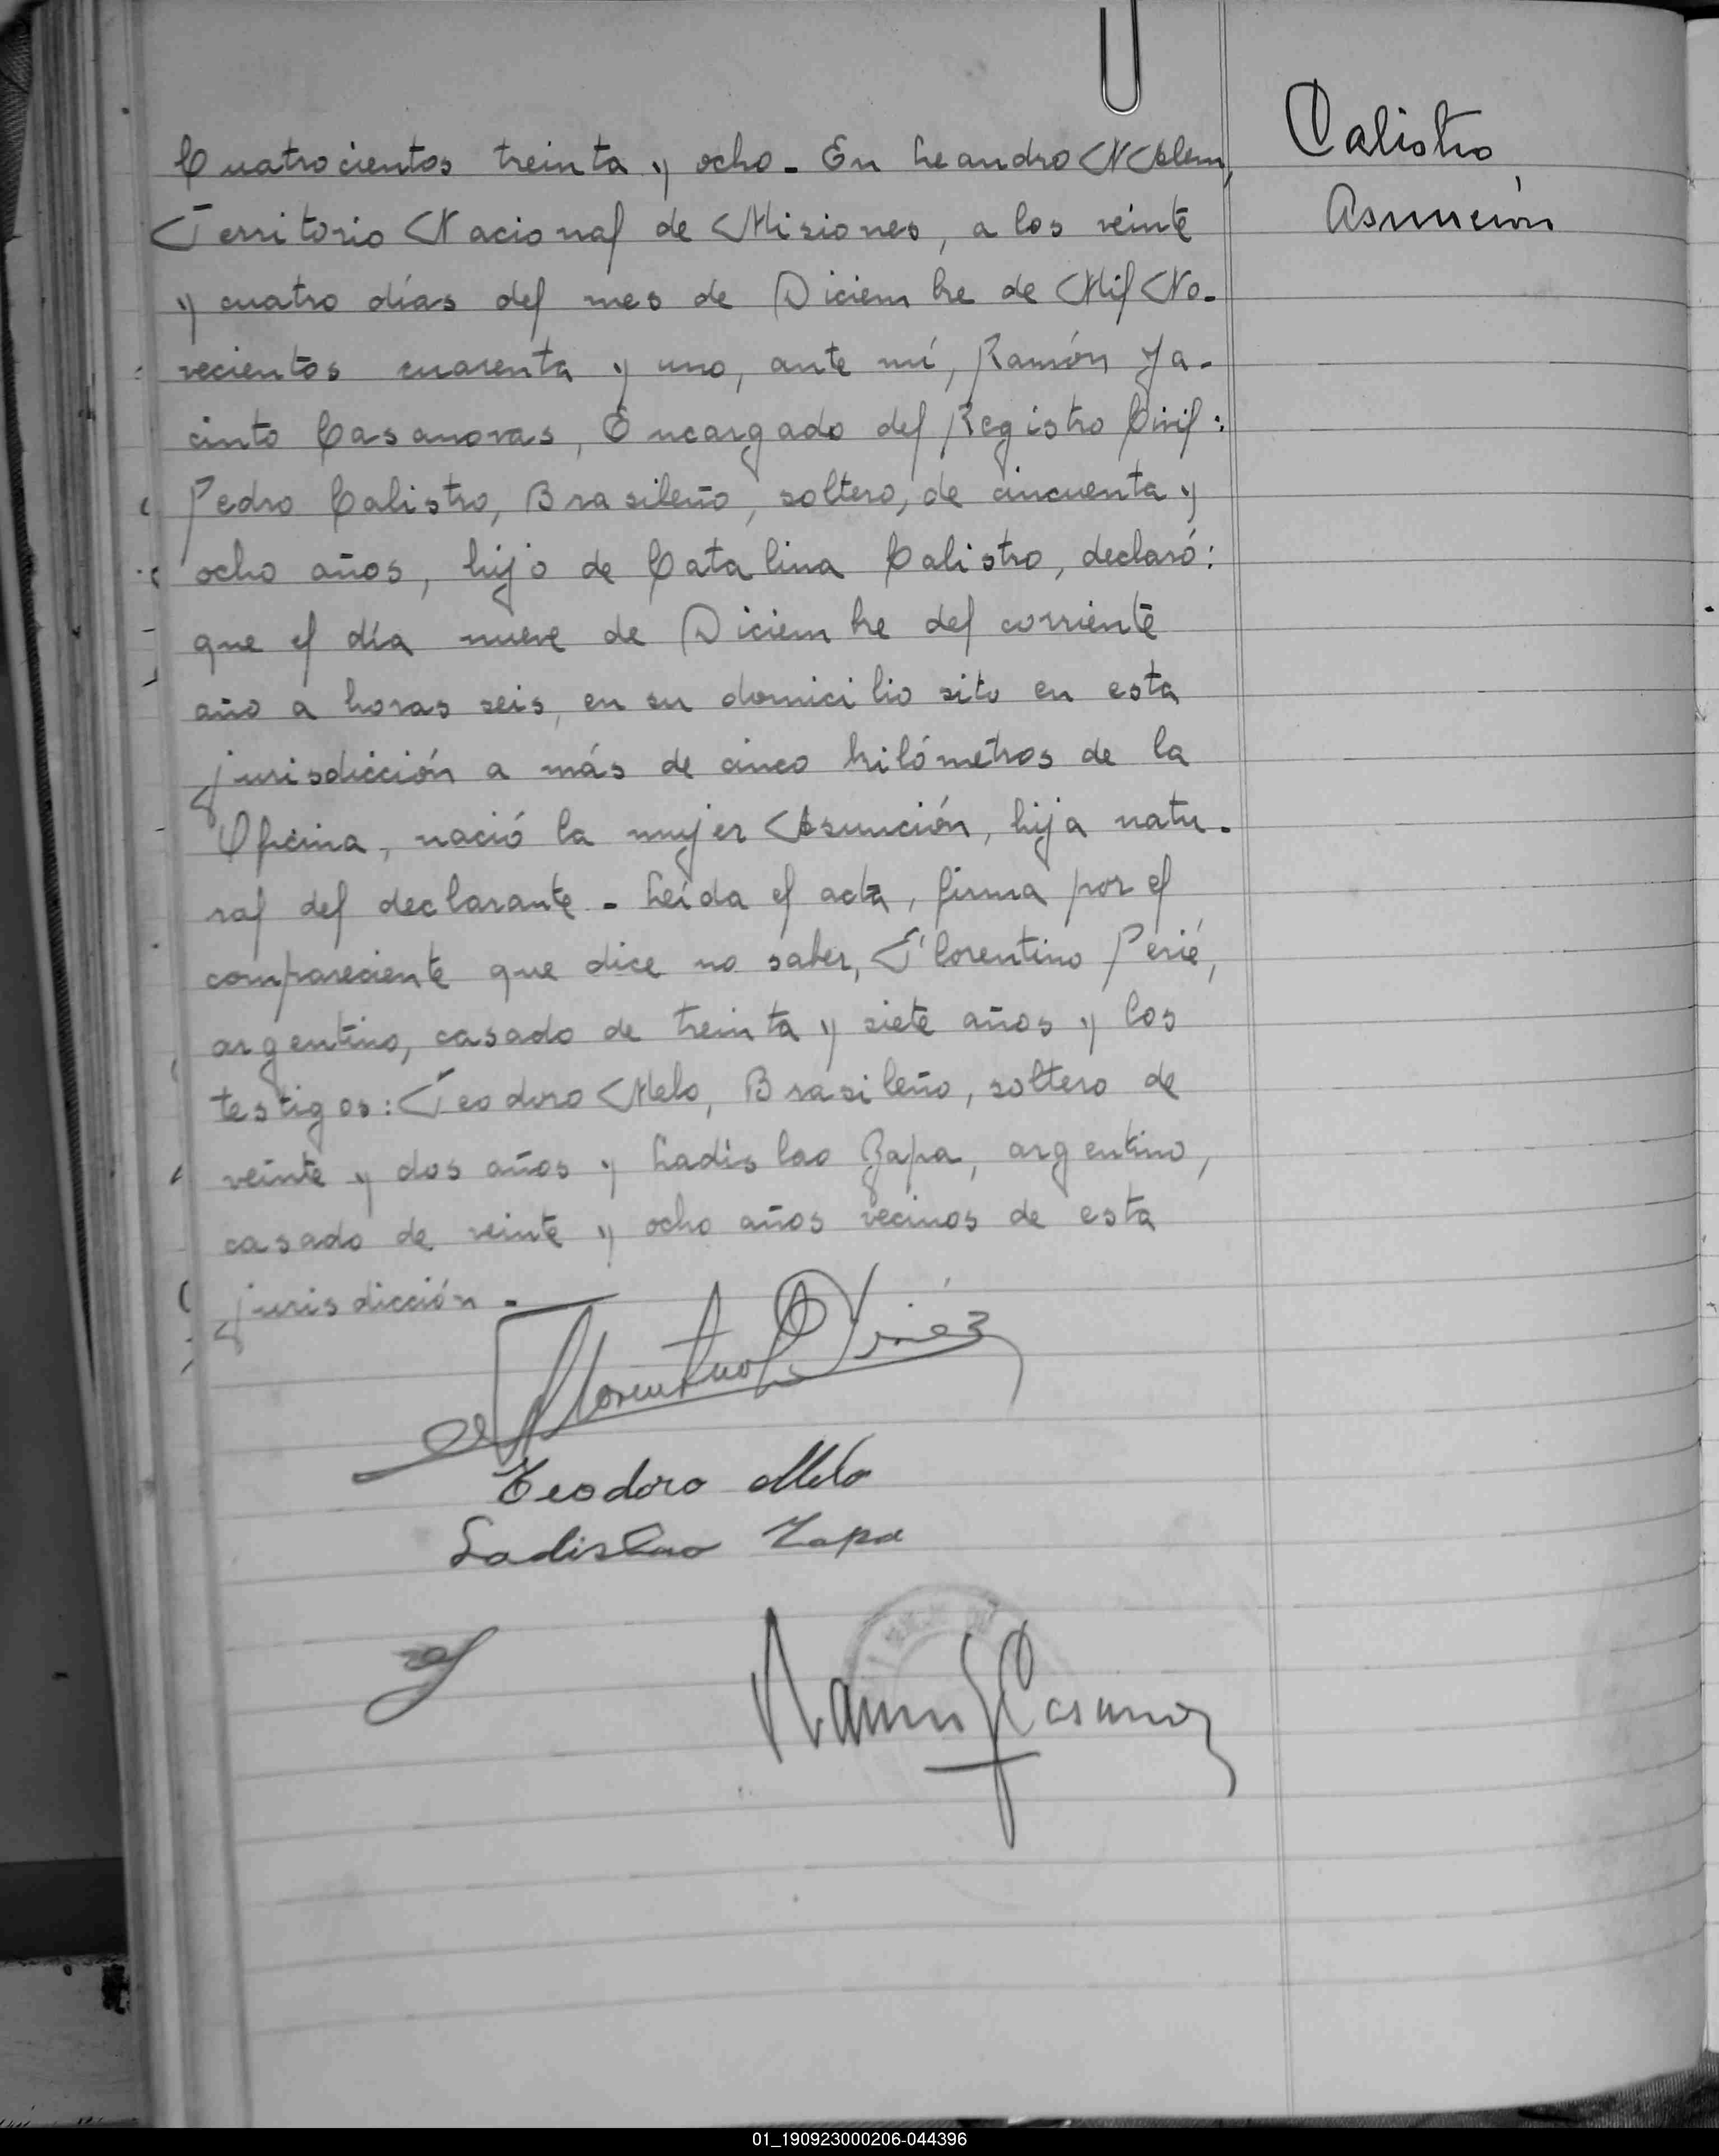 Cuatrocientos treinta y ocho. En Leandro N Alem,
Territorio Nacional de Misiones, a los veinte
y cuatro días del mes de Diciembre de Mil No-
vecientos cuarenta y uno, ante mí, Ramón Ja-
cinto Casanovas, Encargado del Registro Civil:
Pedro Calistro, Brasileño, soltero, de cincuenta y
ocho años, hijo de Catalina Calistro, declaró:
que el día nueve de Diciembre del corriente
año a horas seis, en su domicilio sito en esta
jurisdicción a más de cinco kilómetros de la
Oficina, nació la mujer Asunción, hija natu-
ral del declarante. Leída el acta, firma por el
compareciente que dice no saber, Florentino Perié,
argentino, casado de treinta y siete años y los
testigos: Teodoro Melo, Brasileño, soltero de
veinte y dos años y Ladislao Zapa, argentino,
casado de veinte y ocho años vecinos de esta
jurisdicción.
Florentino
Teodoro Melo
Ladislao Zapa
Ramón J Casanovas
Calistro,
Asunción
01_190923000206-044396